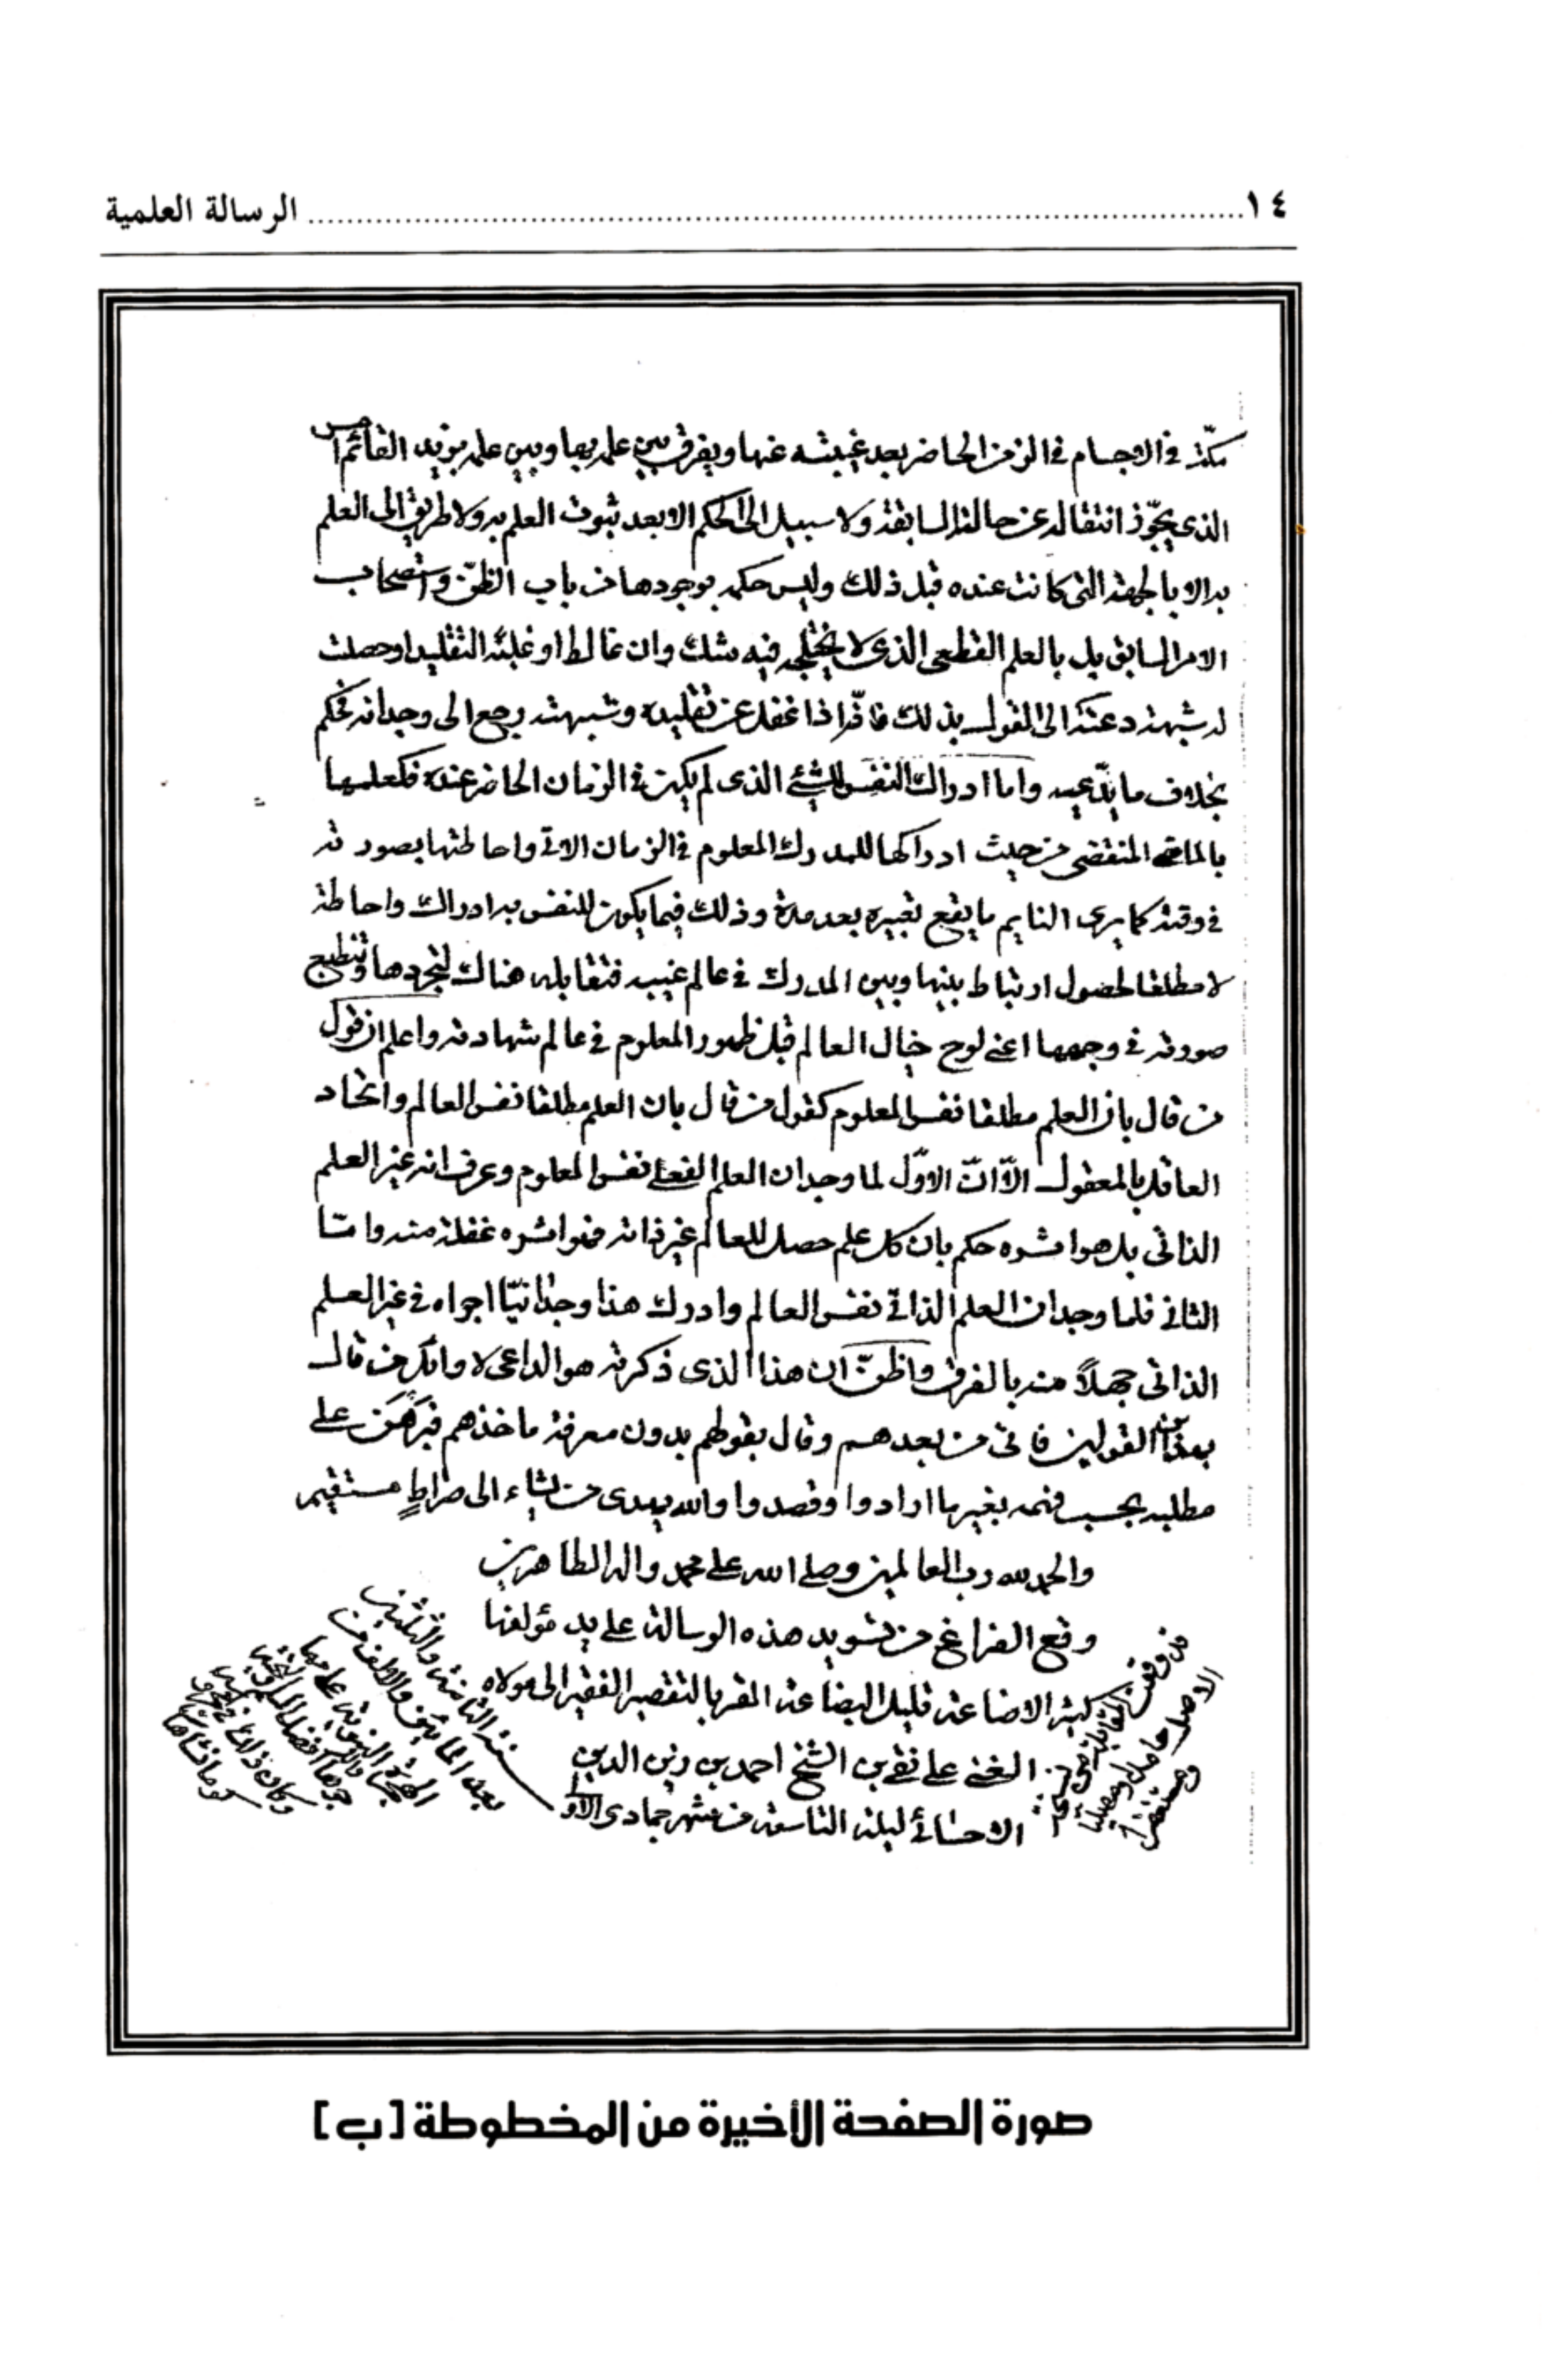 ١٤ ........ الرسالة العلمية
مكّة في الاجسام في الزمن الحاضر بعد غيبته عنها ويفرق بين علمه بها وبين علمه بزيد القائم امس
الذي يجوّز انتقاله عن حالته السابقة ولا سبيل الى الحكم الا بعد ثبوت العلم به ولا طريق الى العلم
به الا بالجهة التى كانت عنده قبل ذلك وليس حكمه بوجودها من باب الظنّ واستصحاب
الامر السابق بل بالعلم القطعى الذى لا يختلجه فيه شك وان غالط او غلبَه التقليد او حصلت
له شبهة دعته الى القول بذلك فانّه اذا غفل عن تقليده وشبهته رجع الى وجدانه فحكم
بخلاف ما يدّعيه واما ادراك النفس للشئ الذى لم يكن في الزمان الحاضر عنده فكعلمها
بالماضي المنقضى من حيث ادراكها للمدرك المعلوم في الزمان الاتي واحاطتها بصورته
في وقته كما يرى النايم ما يقع تعبيره بعد مدة وذلك فيما يكون للنفس به ادراك واحاطة
لا مطلقا لحصول ارتباط بينها وبين المدرك في عالم غيبه فتقابله هناك لتجردها وتنطبع
صورته في وجهها اعني لوح خيال العالم قبل ظهور المعلوم في عالم شهادته واعلم ان قول
من قال بان العلم مطلقا نفس المعلوم كقول من قال بان العلم مطلقا نفس العالم واتحاد
العاقل بالمعقول الّا انّ الاوّل لما وجد ان العلم الفعلي نفس المعلوم وعرف انه غير العلم
الذاتى بل هو اثره حكم بان كل علم حصل للعالم غير ذاته فهو اثره غفلة منه وامّا
الثاني فلما وجد ان العلم الذاتي نفس العالم وادرك هذا وجدانيّا اجراه في غير العلم
الذاتى جهلاً منه بالفرق واظنّ ان هذا الذى ذكرته هو الداعى لاوائل من قال
بهذين القولين فاتى من بعدهم وقال بقولهم بدون معرفة ماخذهم فبَرهَن على
مطلبه بحسب فهمه بغير ما ارادوا وقصدوا والله يهدى من يشاء الى صراطٍ مستقيم
والحمد لله رب العالمين وصلى الله على محمد واله الطاهرين
وقع الفراغ من تسويد هذه الرسالة على يد مؤلفها
كثير الاضاعة قليل البضاعة المقر بالتقصير الفقير الى مولاه
الغني علي نقي بن الشيخ احمد بن زين الدين
الاحسائي ليلة التاسعة من شهر جمادى الاولى
سنة الثامنة والثلثين
بعد المائتين والالف من
الهجرة النبوية على مهاجرها
قد وقعت المقابلة
الاصل حامدا ومصليا
ومستغفرا
صورة الصفحة الأخيرة من المخطوطة [ب]